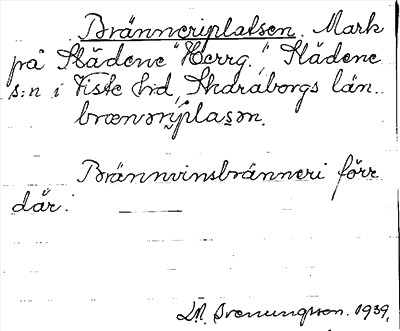 Bränneriplatsen. Mark
på Slädene "Herrg.", Slädene
s:n i Viste hd, Skaraborgs län.
brænəriplasən.
Brännvinsbränneri förr
där.
D.A. Svenungsson. 1939.